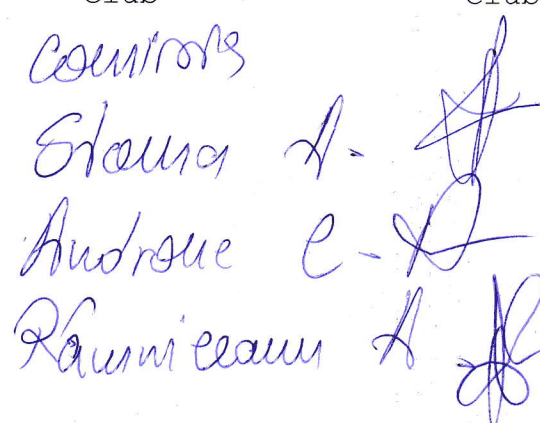 Club Club
Comisia
Stama A.
Androne C.
Râmniceanu A